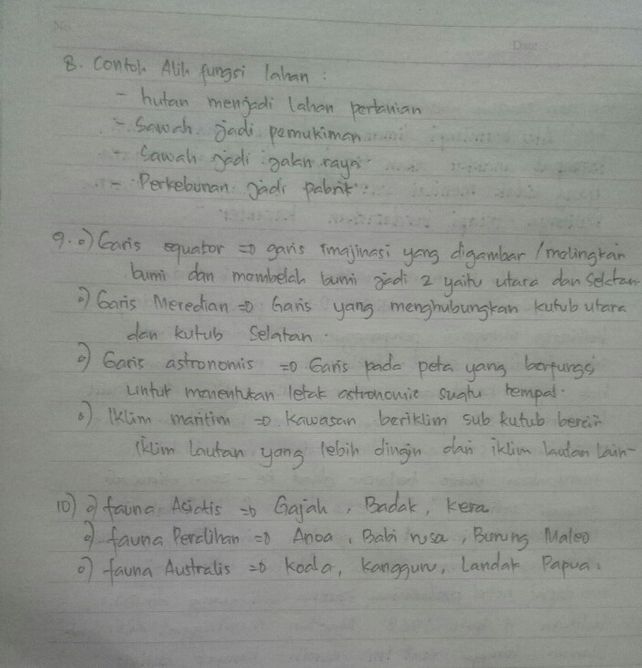 No.
Date
8. Contoh Alih fungsi lahan :
- hutan menjadi lahan pertanian
- Sawah jadi pemukiman
- Sawah jadi jalan raya
- Perkebunan jadi pabrik
9. o) Garis equator => garis imajinasi yang digambar / melingkari
bumi dan membelah bumi jadi 2 yaitu utara dan Selatan
o) Garis Meredian => Garis yang menghubungkan kutub utara
dan kutub Selatan.
o) Garis astronomis => Garis pada peta yang berfungsi
untuk menentukan letak astronomis suatu tempat.
o) Iklim maritim => Kawasan beriklim sub kutub
iklim lautan yang lebih dingin dari iklim lautan lain-
10) o) fauna Asiatis => Gajah, Badak, Kera
o) fauna Peralihan => Anoa, Babi rusa, Burung Maleo
o) fauna Australis => Koala, Kangguru, Landak Papua.